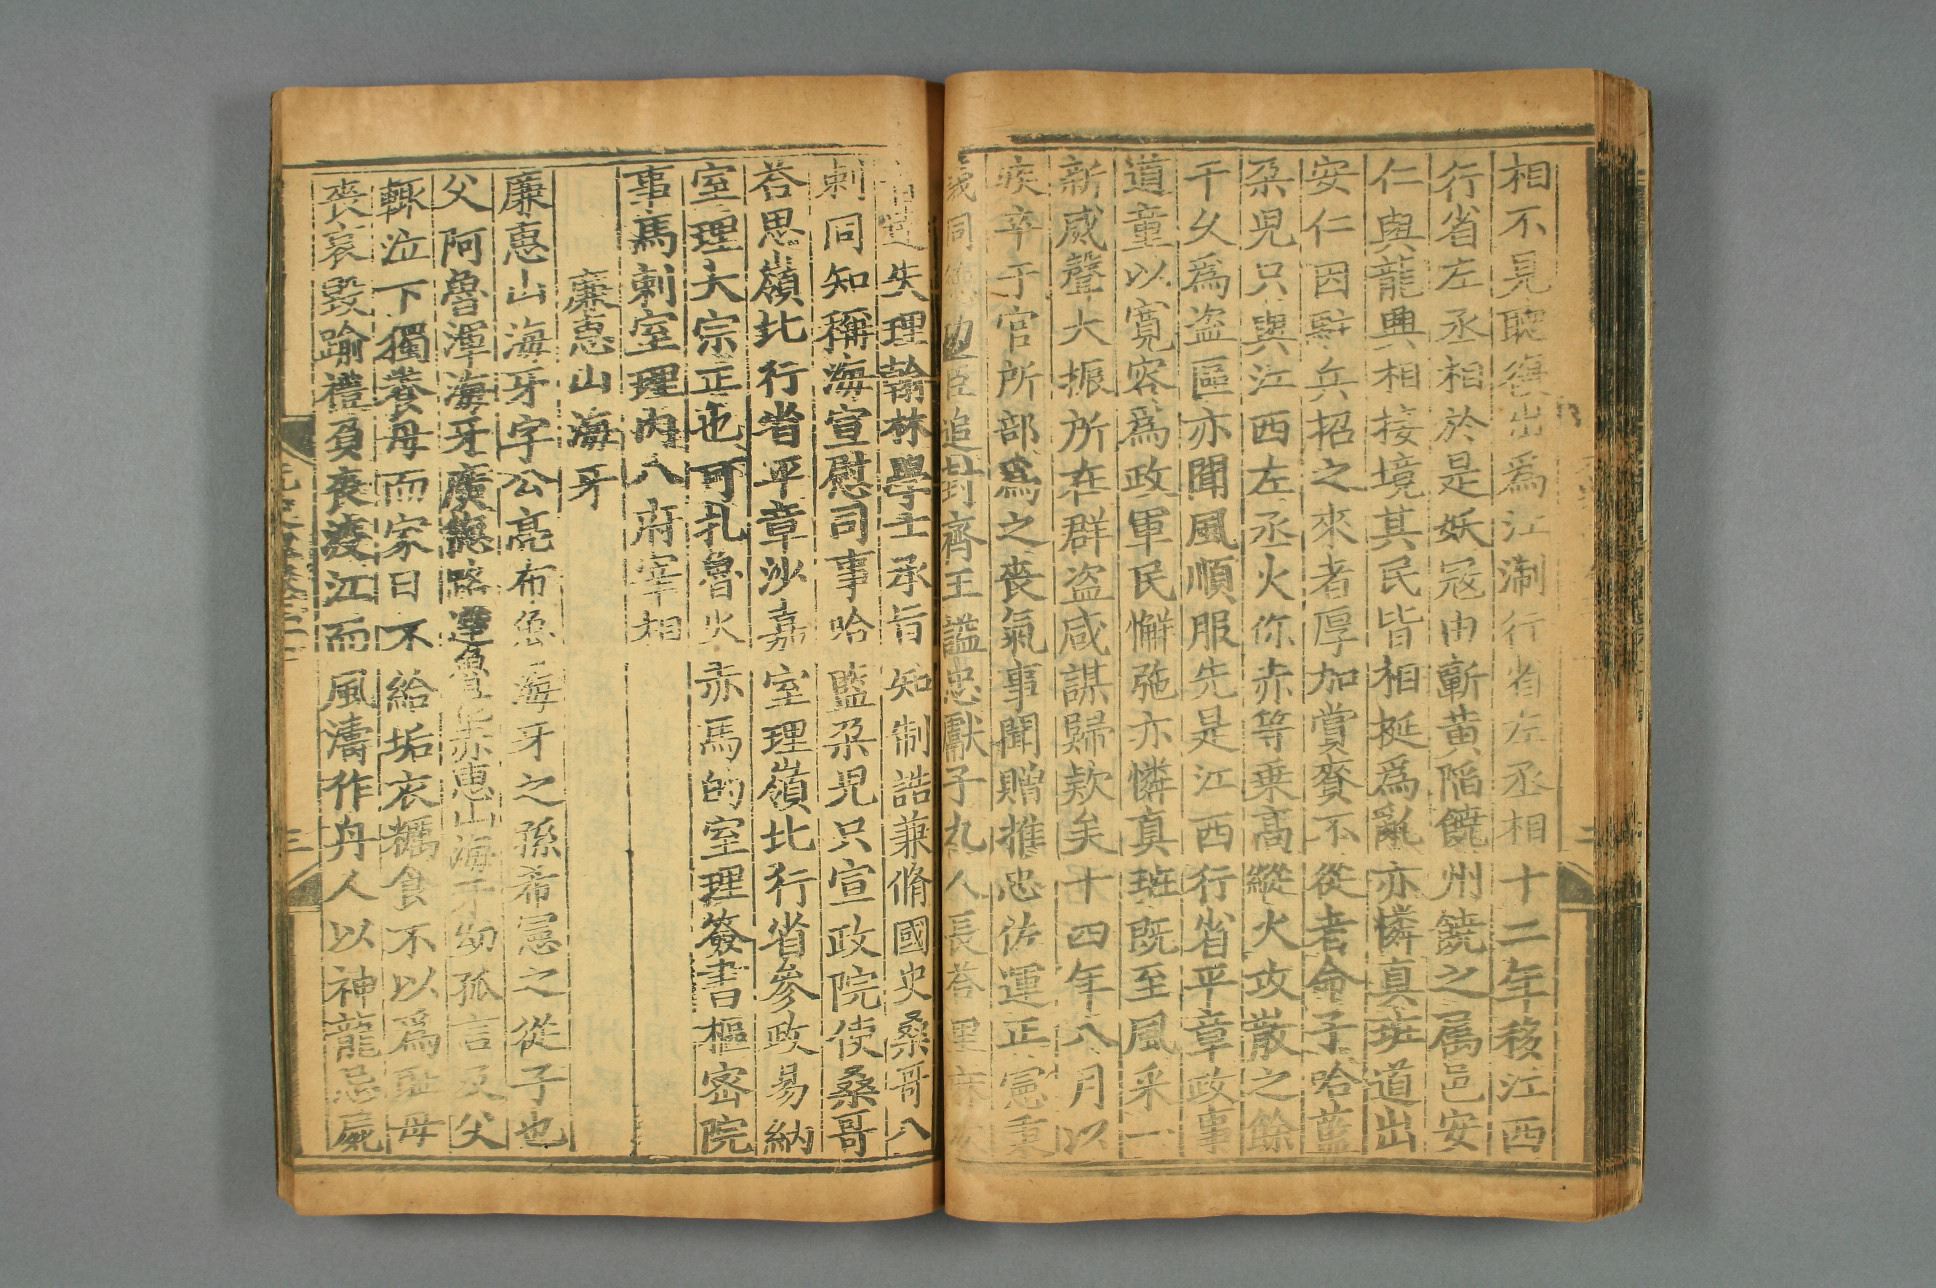 相不見聽復出爲江淛行省左丞相十二年移江西
行省左丞相於是妖寇由蘄黄陷饒州饒之属邑安
仁與龍興相接境其民皆相挻爲亂亦憐真班道出
安仁因駐兵招之來者厚加賞賚不從者命子哈藍
朶児只與江西左丞火你赤等乗高縱火攻散之餘
干久爲盗區亦聞風順服先是江西行省平章政事
道童以寬容爲政軍民懈弛亦憐真班既至風采一
新威聲大振所在群盗咸謀歸欵矣十四年八月以
疾卒于官所部爲之喪氣事聞贈推忠佐運正憲秉
義同德功臣追封齊王謚忠獻子九人長荅里麻
失理翰林學士承旨知制誥兼脩國史桑哥八
剌同知稱海宣慰司事哈藍朶児只宣政院使桑哥
荅思嶺北行省平章沙嘉室理嶺北行省參政易納
室理大宗正也可扎魯火赤馬的室理簽書樞密院
事馬剌室理内八府宰相
廉惠山海牙
廉惠山海牙字公亮布魯海牙之孫希憲之從子也
父阿魯渾海牙廣德路達魯花赤惠山海牙幼孤言及父
輙泣下獨養母而家日不給垢衣糲食不以爲耻母
喪哀毀踰禮負喪渡江而風濤作舟人以神龍忌屍